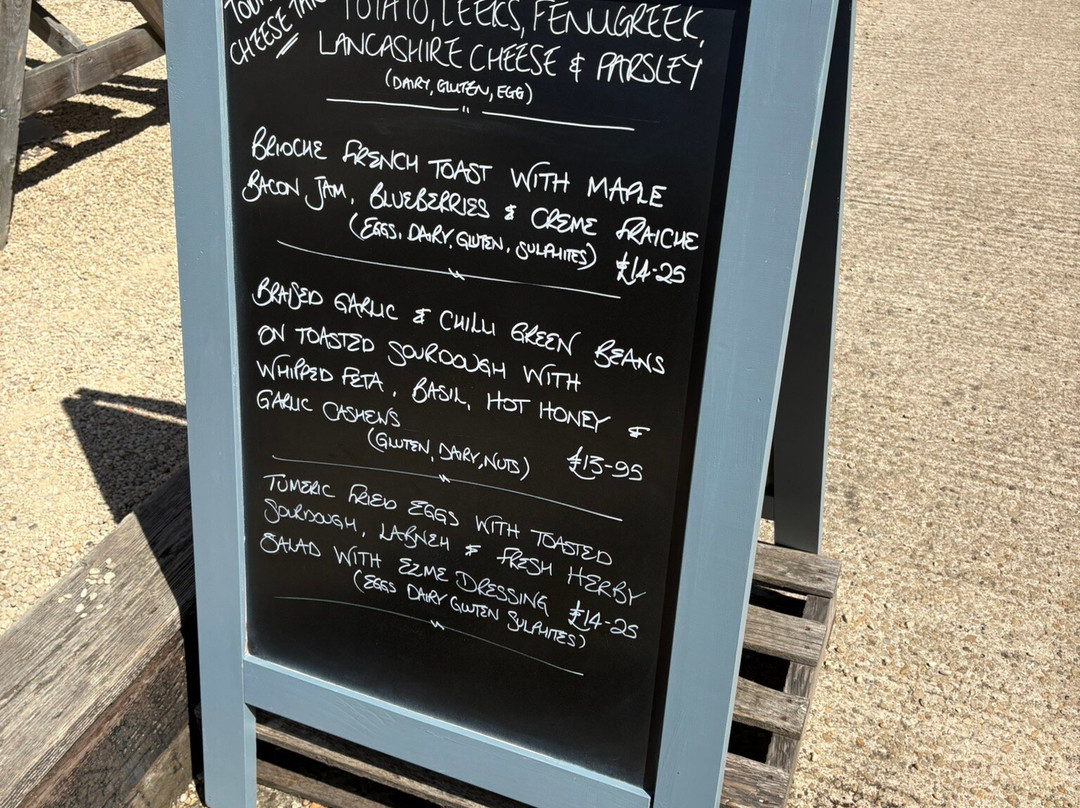 CHEESE
POTATO, LEEKS, FENUGREEK,
LANCASHIRE CHEESE & PARSLEY
(DAIRY, GLUTEN, EGG)
BRIOCHE FRENCH TOAST WITH MAPLE
BACON JAM, BLUEBERRIES & CREME FRAICHE
(EGGS, DAIRY, GLUTEN, SULPHITES) £14-25
BRAISED GARLIC & CHILLI GREEN BEANS
ON TOASTED SOURDOUGH WITH
WHIPPED FETA, BASIL, HOT HONEY &
GARLIC CASHEWS
(GLUTEN, DAIRY, NUTS) £13-95
TUMERIC FRIED EGGS WITH TOASTED
SOURDOUGH, LABNEH & FRESH HERBY
SALAD WITH EZME DRESSING £14-25
(EGGS DAIRY GLUTEN SULPHITES)